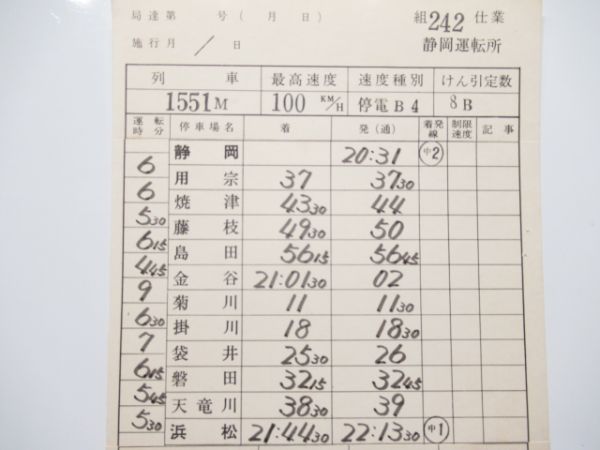 局達第 号( 月 日)
組242仕業
施行月 / 日
静岡運転所
列車 最高速度 速度種別 けん引定数
1551M 100 KM/H 停電B4 8B
運転時分 停車場名 着 発(通) 着発線 制限速度 記事
静岡 20:31 中2
6
用宗 37 37 30
6
焼津 43 30 44
5 30
藤枝 49 30 50
6 15
島田 56 15 56 45
4 45
金谷 21:01 30 02
9
菊川 11 11 30
6 30
掛川 18 18 30
7
袋井 25 30 26
6 15
磐田 32 15 32 45
5 45
天竜川 38 30 39
5 30
浜松 21:44 30 22:13 30 中1